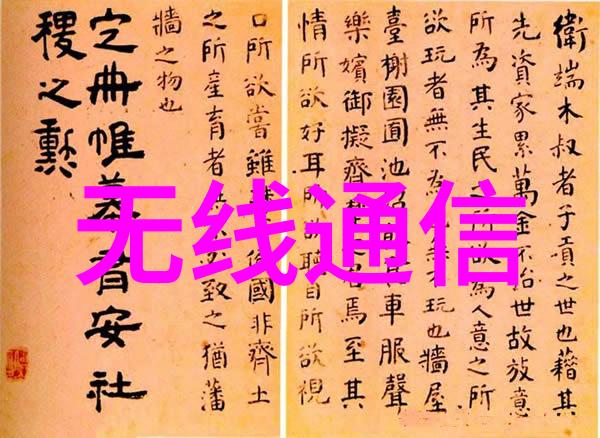 衛端木叔者子貢之世也藉其
先資家累萬金不治世故放意
所為其生民之所欲為人意之所
欲玩者無不為不玩也牆屋
臺榭園囿池車服聲
樂嬪御擬齊焉至其
情所欲好耳所聽目所欲視
口所欲嘗雖國非齊土
之所產育者必致之猶藩
牆之物也
定冊帷幕有安社
稷之勳
无线通信